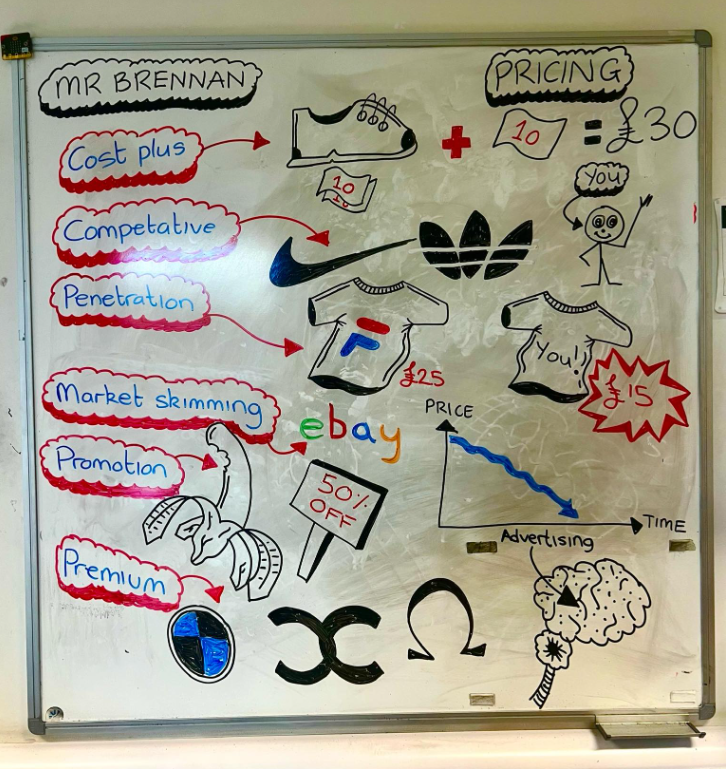 MR BRENNAN
PRICING
Cost plus
+ 10 = £30
10
10
You
Competative
Penetration
£25
You!!
£15
Market skimming
ebay
PRICE
TIME
Promotion
50%
OFF
Advertising
Premium